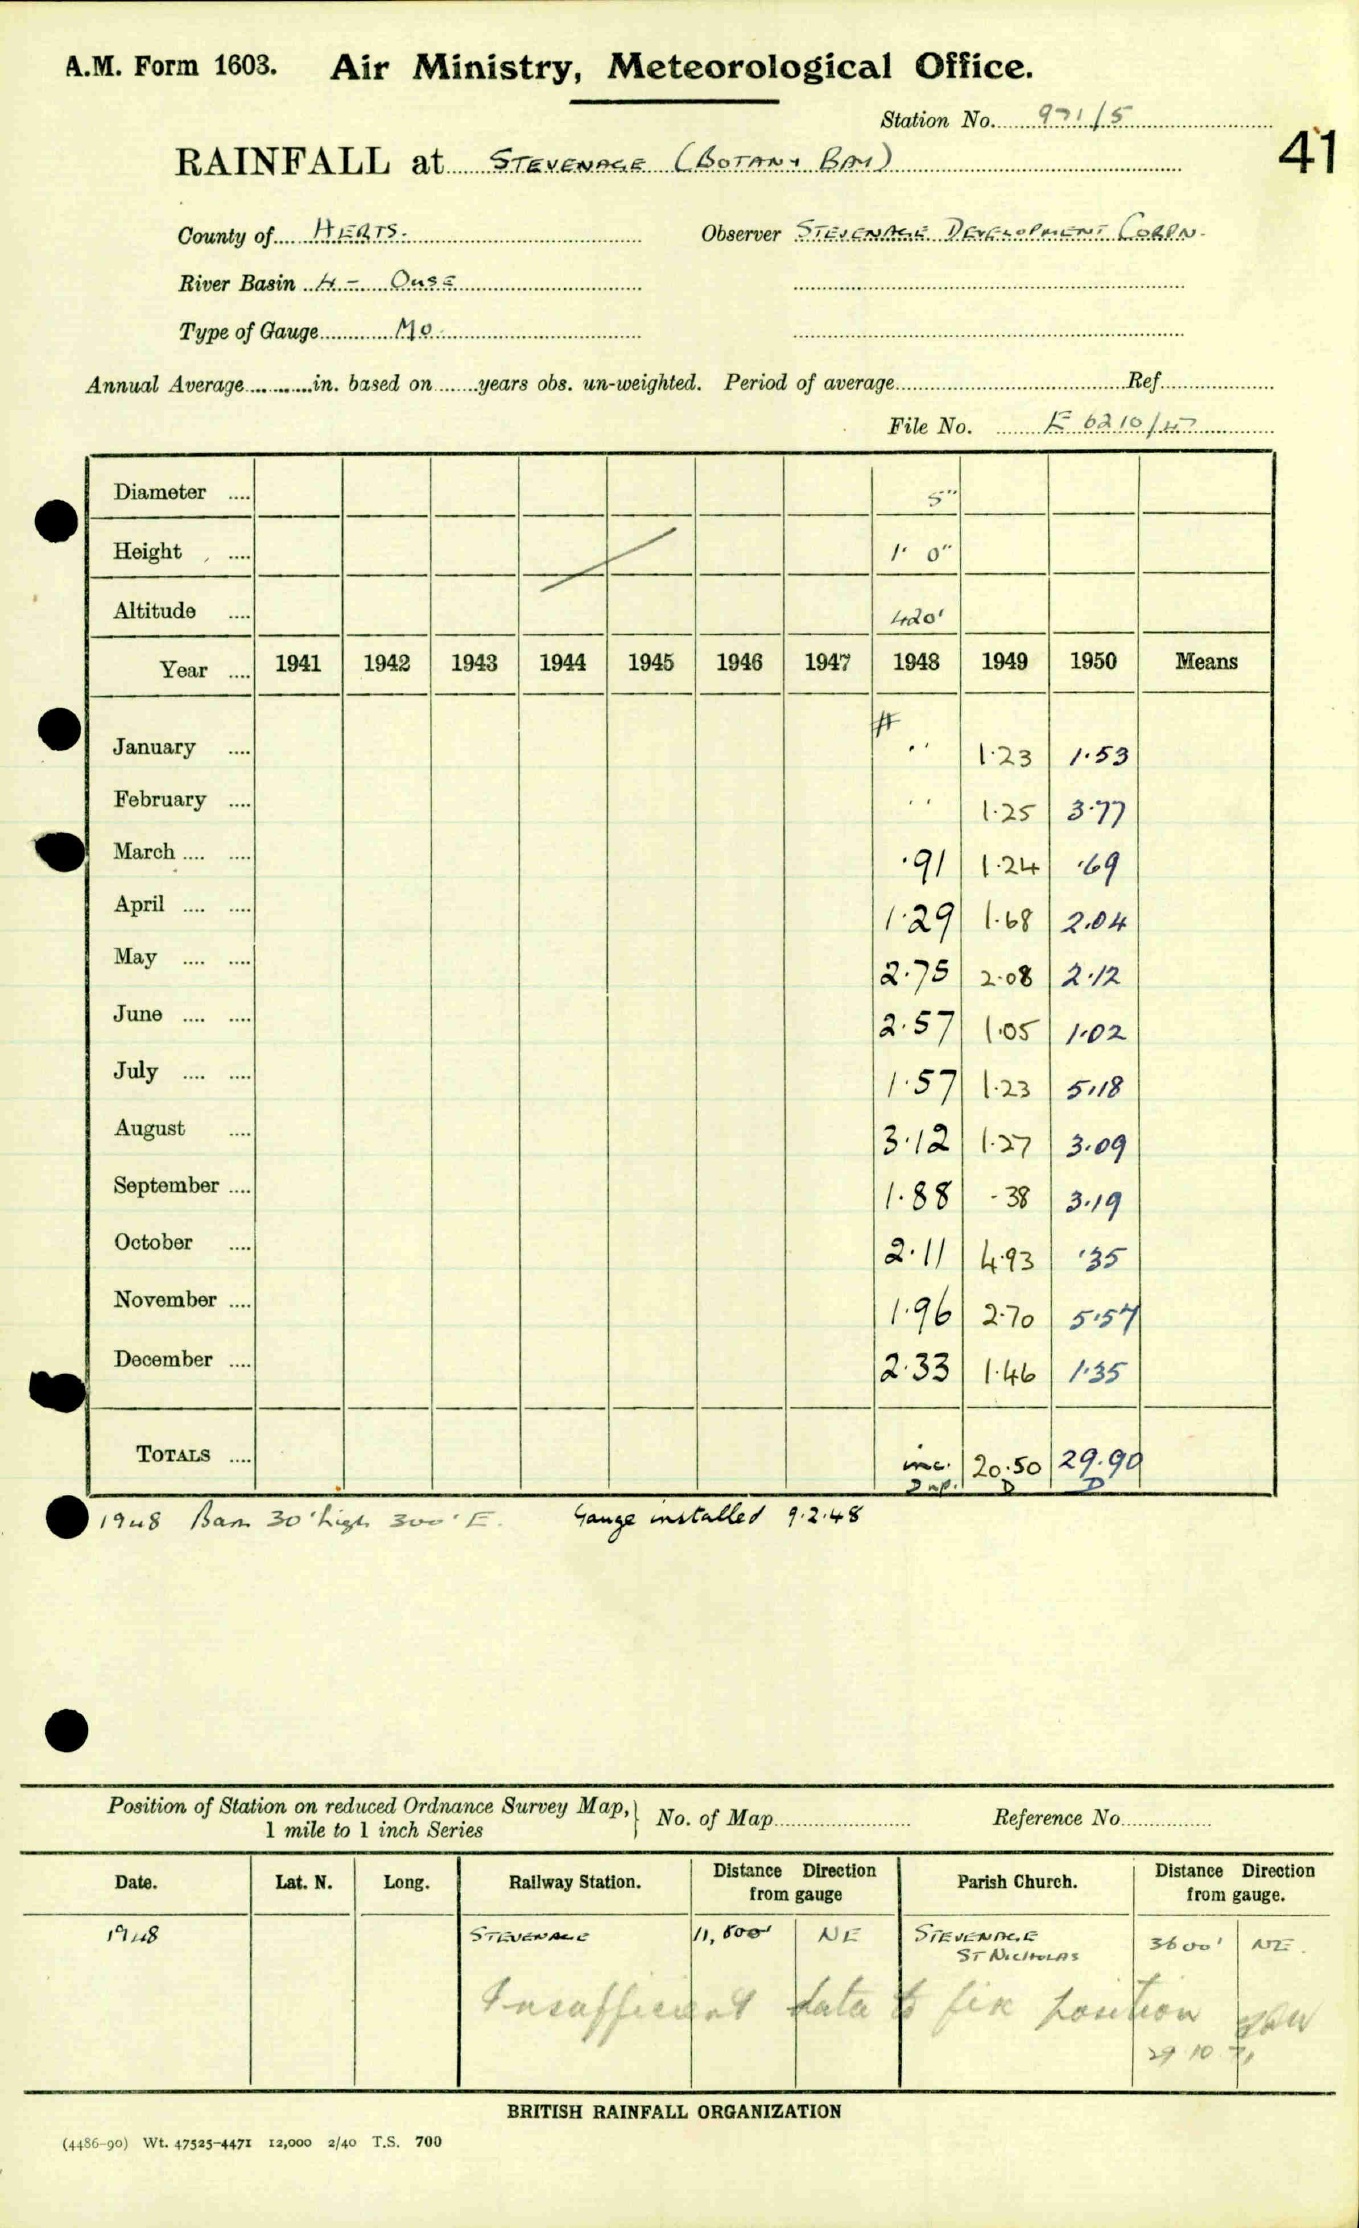 A.M. Form 1603. Air Ministry, Meteorological Office.
Station No. 971/5
41
RAINFALL at STEVENAGE (BOTANY BAY)
County of HERTS. Observer STEVENAGE DEVELOPMENT CORPN.
River Basin 4 - OUSE
Type of Gauge Mo.
Annual Average in. based on years obs. un-weighted. Period of average Ref.
File No. E 6210/47
Diameter .... 5"
Height .... 1' 0"
Altitude .... 420'
Year .... 1941 1942 1943 1944 1945 1946 1947 1948 1949 1950 Means
#
January .... .. 1.23 1.53
February .... .. 1.25 3.77
March .... .... .91 1.24 .69
April .... .... 1.29 1.68 2.04
May .... .... 2.75 2.08 2.12
June .... .... 2.57 1.05 1.02
July .... .... 1.57 1.23 5.18
August .... 3.12 1.27 3.09
September .... 1.88 .38 3.19
October .... 2.11 4.93 .35
November .... 1.96 2.70 5.57
December .... 2.33 1.46 1.35
TOTALS .... inc. 20.50 29.90
D D
1948 Barn 30' high 300' E. Gauge installed 9.2.48
Position of Station on reduced Ordnance Survey Map, } No. of Map Reference No.
1 mile to 1 inch Series
Date. Lat. N. Long. Railway Station. Distance Direction from gauge Parish Church. Distance Direction from gauge.
1948 STEVENAGE 11,500' NE STEVENAGE ST NICHOLAS 3600' NE.
Insufficient data to fix position
29 10 71
BRITISH RAINFALL ORGANIZATION
(4486-90) Wt. 47525-4471 12,000 2/40 T.S. 700